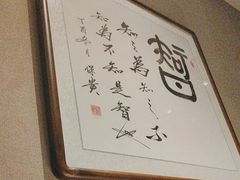 智
知之為知之不
知為不知是智也
丁酉 月
保貴